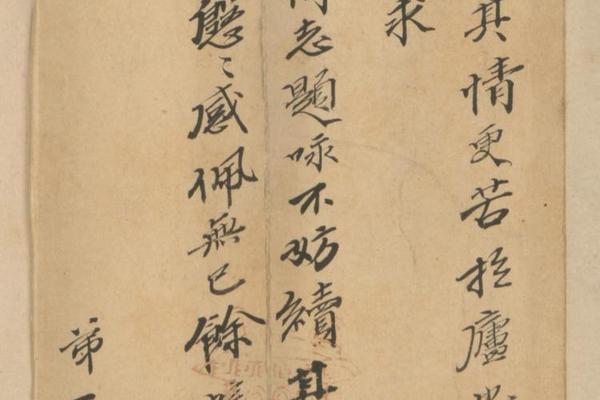 其情更苦於廬
求
志題咏不妨續其
慇〻感佩無已餘
弟